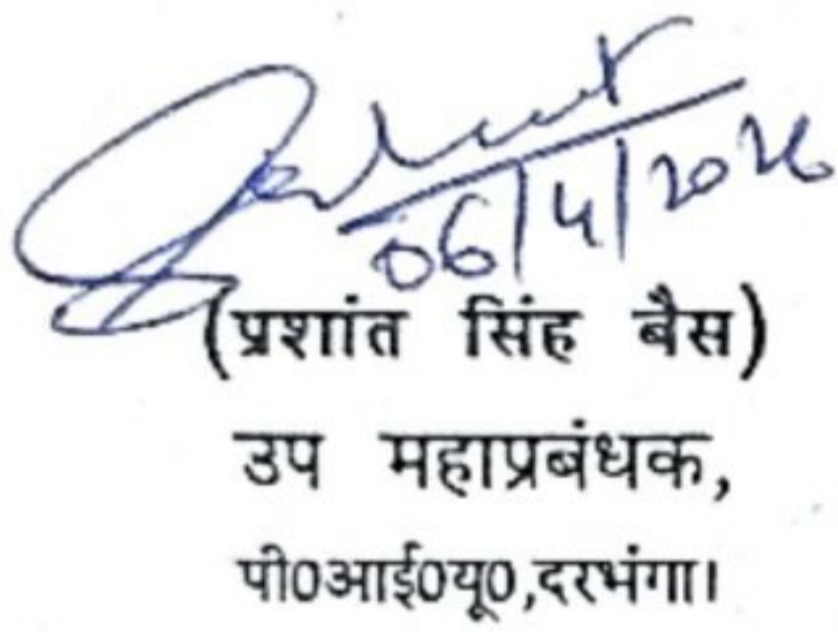 06/4/2026
(प्रशांत सिंह बैस)
उप महाप्रबंधक,
पी0आई0यू0,दरभंगा।